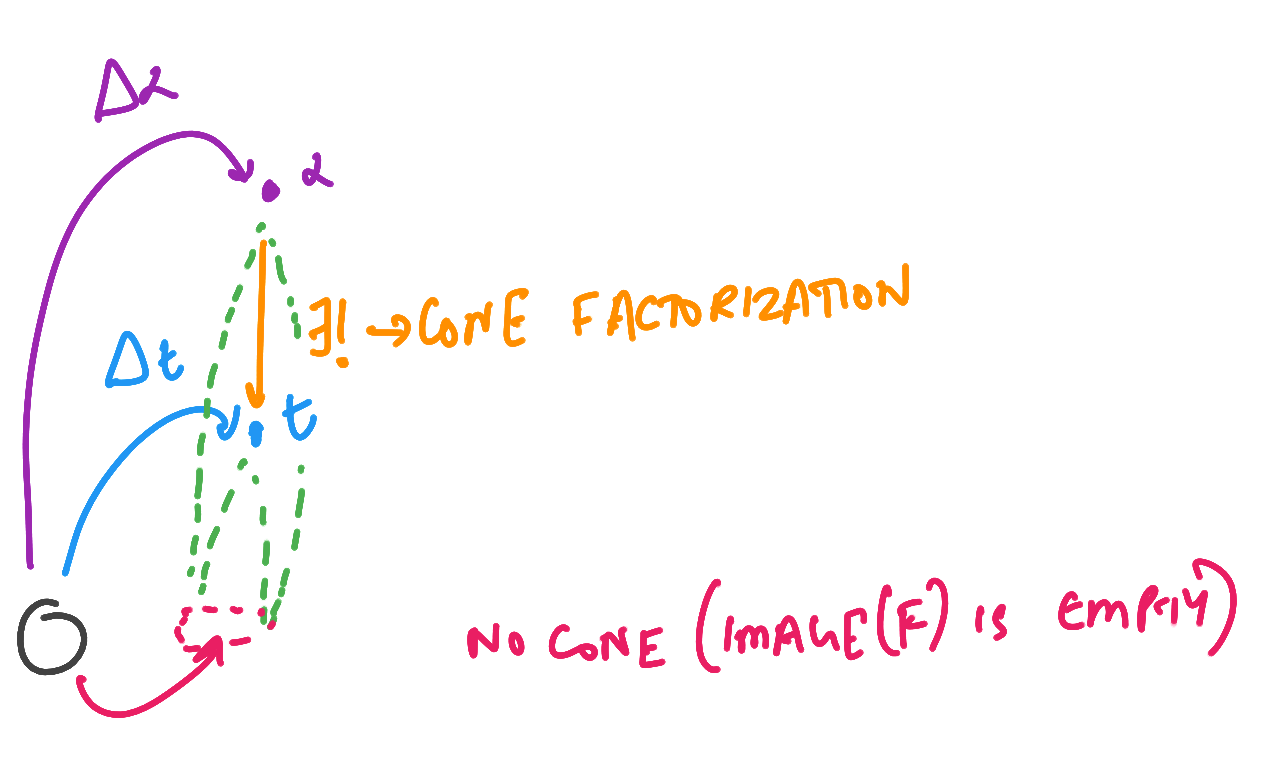 Δα
α
∃! → CONE FACTORIZATION
Δt
t
O
NO CONE (IMAGE(F) IS EMPTY)